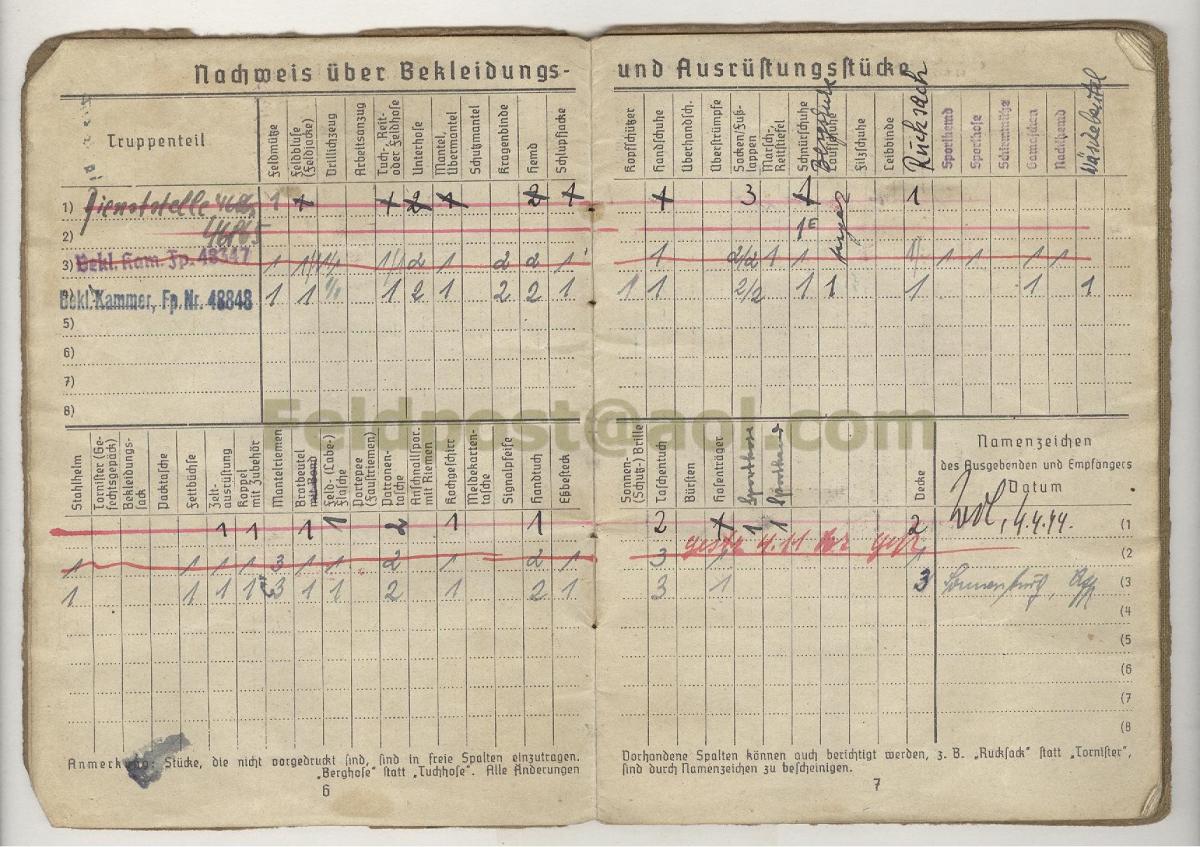 Nachweis über Bekleidungs- und Ausrüstungsstücke
Truppenteil
Feldmütze
Feldbluse (Feldjacke)
Drillichzeug
Arbeitsanzug
Tuch-, Reit- oder Feldhose
Unterhose
Mantel, Übermantel
Schutzmantel
Kragenbinde
Hemd
Schlupfjacke
Kopfschützer
Handschuhe
Überhandsch.
Überstrümpfe
Socken/Fußlappen
Marsch-, Reitstiefel
Schnürschuhe
Laufschuhe
Filzschuhe
Leibbinde
Rucksack
Sporthemd
Sporthose
Schirmmütze
Gamaschen
Nachthemd
Wäschebeutel
1) Dienststelle 1 2 2 3 1
2) 46845 1
3) Bekl. Kam. Fp. 48347 1 2 1 2 2 1 1 2/2 1 1 1 1 1 1
Bekl.-Kammer, Fp. Nr. 48848 1 1 1 2 1 2 2 1 1 1 2/2 1 1 1 1 1
5)
6)
7)
8)
Feldpost@aol.com
Stahlhelm
Tornister (Gefechtsgepäck)
Bekleidungssack
Packtasche
Fettbüchse
Zeltausrüstung
Koppel mit Zubehör
Mantelriemen
Brotbeutel mit Band
Feld- (Labe-) Flasche
Portepee (Faustriemen)
Patronentasche
Anschnallspor. mit Riemen
Kochgeschirr
Meldekartentasche
Signalpfeife
Handtuch
Eßbesteck
Sonnen- (Schutz-) Brille
Taschentuch
Bürsten
Hosenträger
Sporthose
Sporthemd
Decke
Namenzeichen
des Ausgebenden und Empfängers
Datum
1 1 1 1 2 1 1 2 1 1 2 4.4.44. (1
1 1 1 1 3 1 1 2 1 2 1 3 1 (2
1 1 1 1 3 1 1 2 1 2 1 3 1 3 (3
(4
(5
(6
(7
(8
Anmerkung: Stücke, die nicht vorgedruckt sind, sind in freie Spalten einzutragen.
„Berghose“ statt „Tuchhose“. Alle Änderungen
6
Vorhandene Spalten können auch berichtigt werden, z. B. „Rucksack“ statt „Tornister“,
sind durch Namenzeichen zu bescheinigen.
7